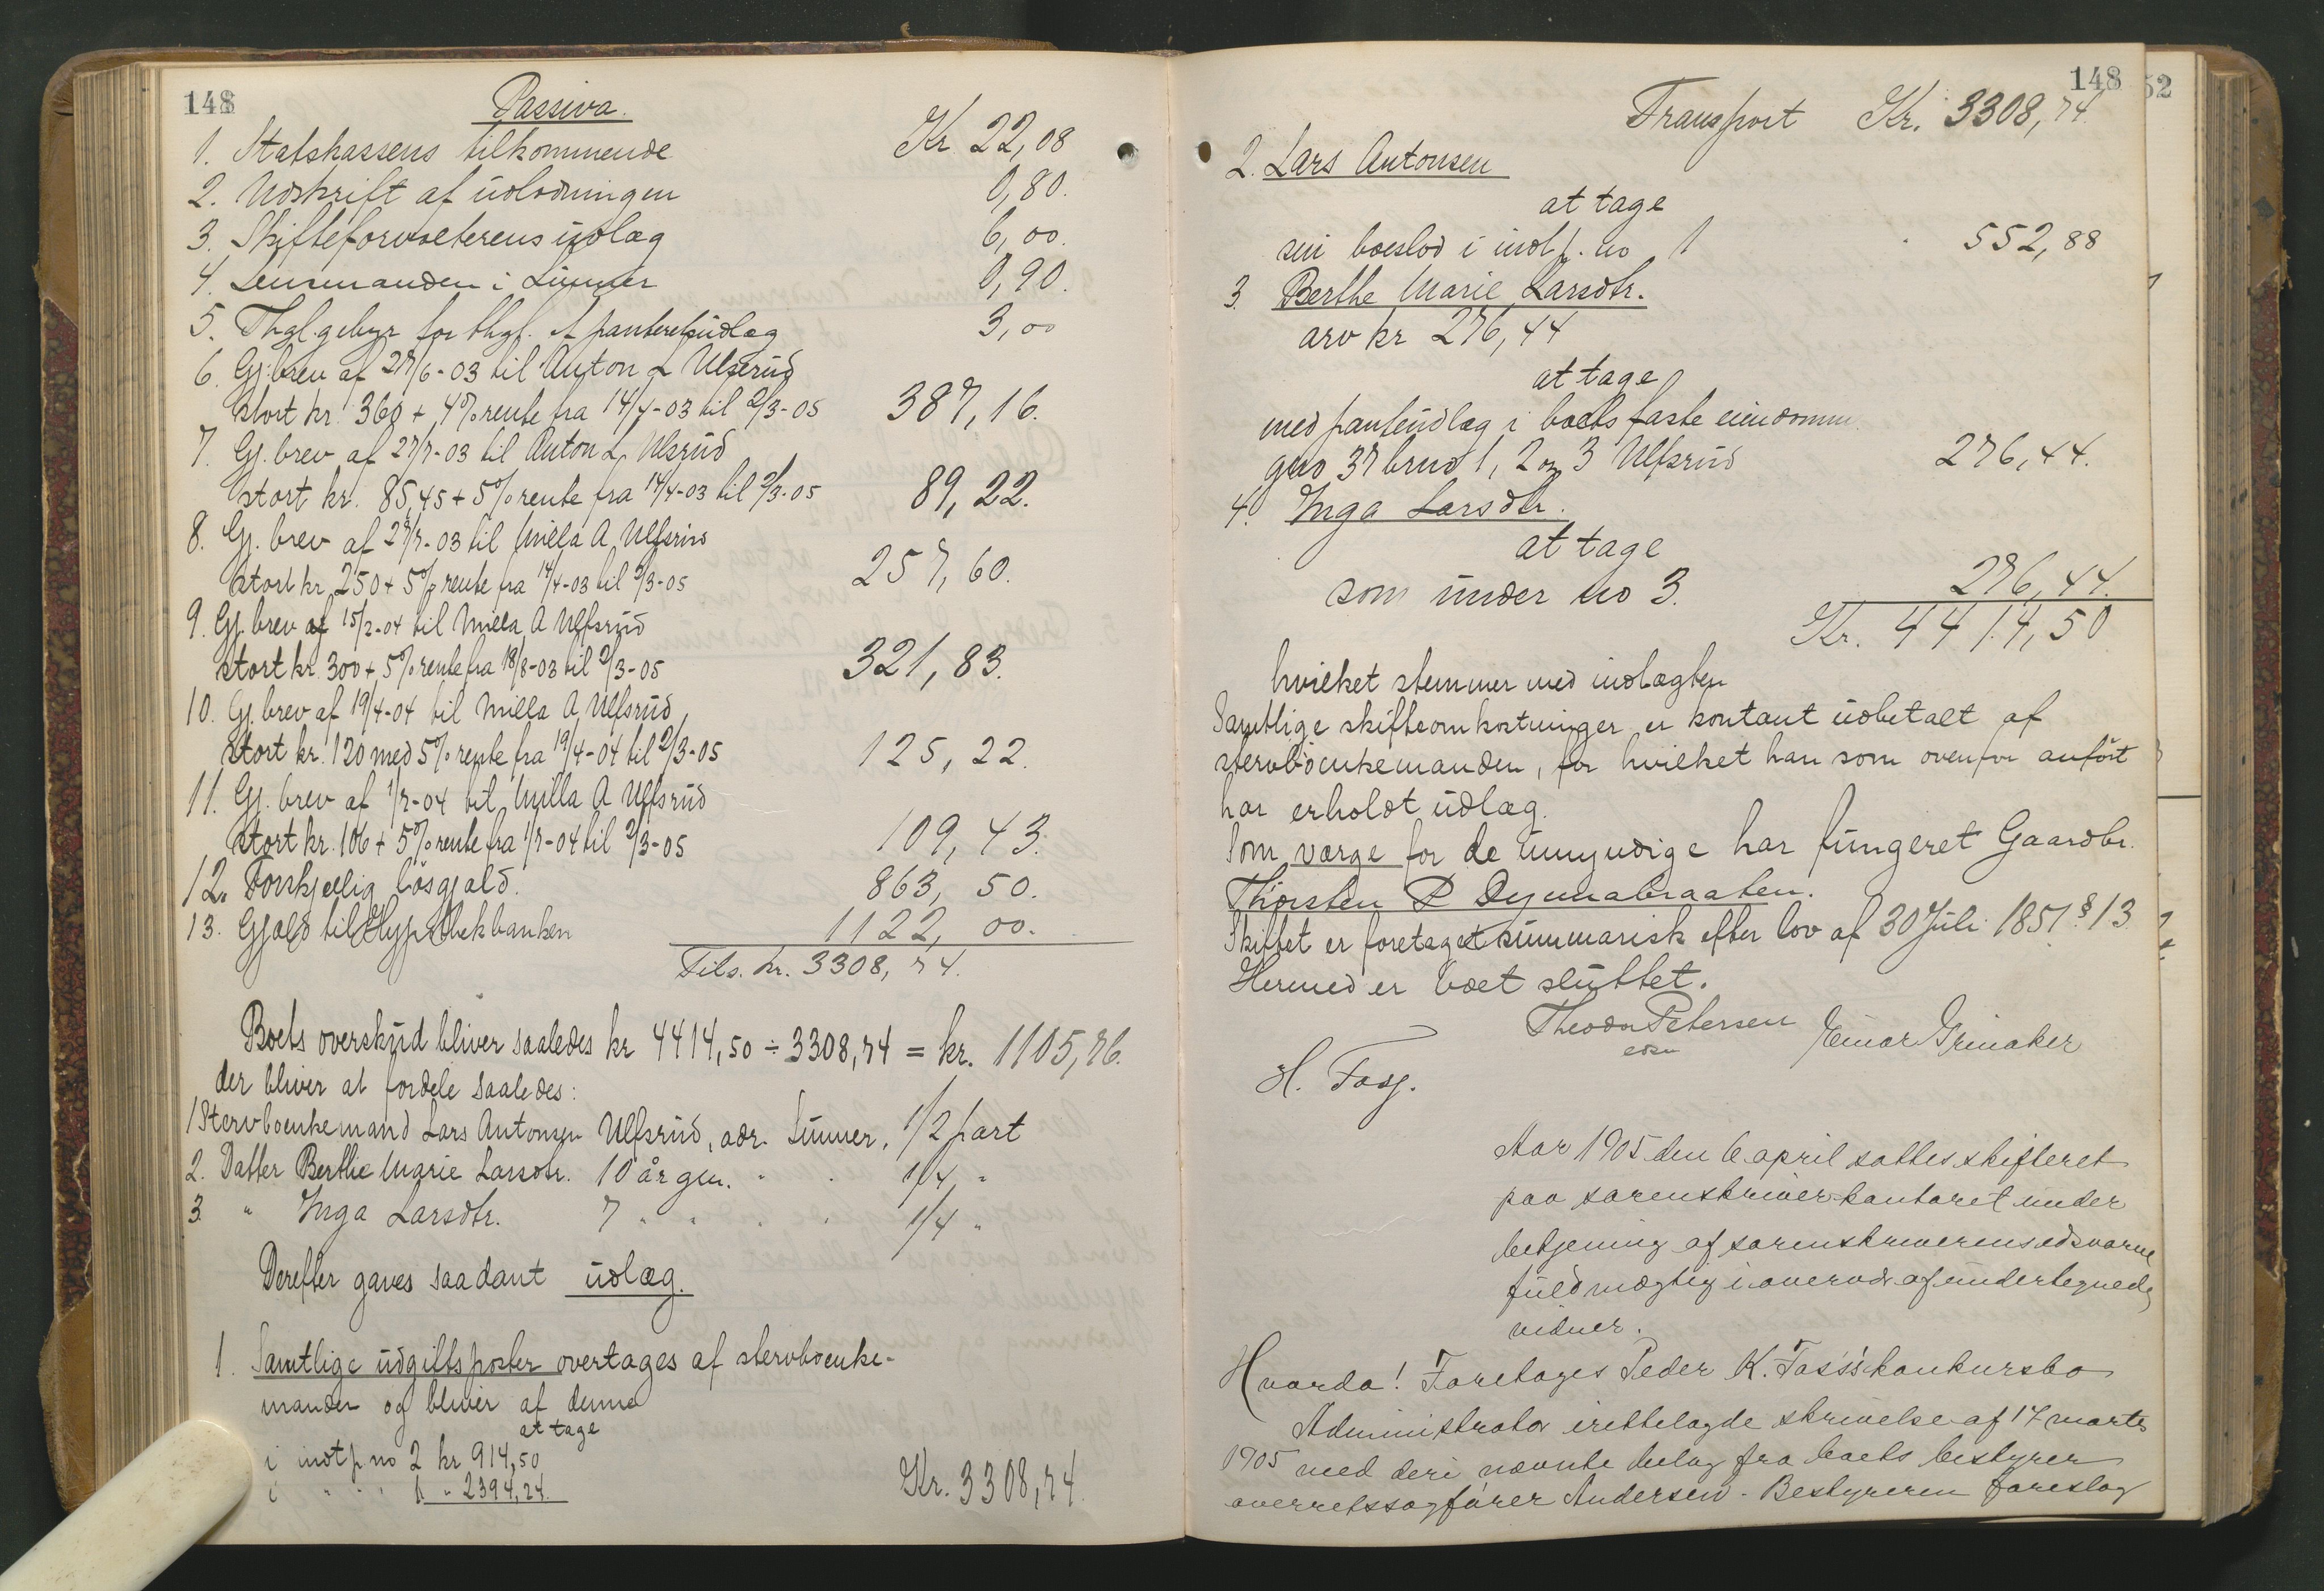 148
Passiva.
1. Statskassens tilkommende Kr 22,08
2. Udskrift af udlodningen 0,80.
3. Skifteforvalterens udlæg 6,00.
4. Lensmanden i Lunner 0,90.
5. Thgl.gebyr for thgl. af panteretsudlæg 3,00
6. Gj.brev af 27/6-03 til Anton L Ulfsrud
stort kr. 360 + 4% rente fra 14/4-03 til 2/3-05 387,16.
7. Gj. brev af 27/7-03 til Anton L Ulfsrud
stort kr. 85,45 + 5% rente fra 14/4-03 til 2/3-05 89,22.
8. Gj. brev af 27/7-03 til Milla A Ulfsrud
stort kr 250 + 5% rente fra 14/4-03 til 2/3-05 257,60.
9. Gj. brev af 15/2-04 til Milla A Ulfsrud
stort kr. 300 + 5% rente fra 18/8-03 til 2/3-05 321,83.
10. Gj. brev af 19/4-04 til Milla A Ulfsrud
stort kr. 120 med 5% rente fra 19/4-04 til 2/3-05 125,22.
11. Gj. brev af 1/7-04 til Milla A Ulfsrud
stort kr. 106 + 5% rente fra 1/7-04 til 2/3-05 109,43.
12. Forskjellig løsgjæld. 863,50.
13. Gjæld til Hypothekbanken 1122,00.
Tils. kr. 3308,74.
Boets overskud bliver saaledes kr 4414,50 ÷ 3308,74 = kr. 1105,76.
der bliver at fordele saaledes:
1 Stervboenkemand Lars Antonsen Ulfsrud, adr. Lunner, 1/2 part
2. Datter Berthe Marie Larsdtr. 10 år gm. " " 1/4 "
3. " Inga Larsdtr. 7 " " " " 1/4 "
Derefter gaves saadant udlæg.
1. Samtlige udgiftsposter overtages af stervboenke-
manden og bliver af denne
at tage
i indt p. no 2 kr 914,50
i " " " 1 " 2394,24. Kr. 3308,74.
148
52
Transport Kr. 3308,74.
2. Lars Antonsen
at tage
sin boeslod i indt p. no 1 552,88
3. Berthe Marie Larsdtr.
arv kr 276,44
at tage
med panteudlæg i boets faste eiendomm.
gno 37 bruno 1, 2 og 3 Ulfsrud 276,44.
4. Inga Larsdtr.
at tage
som under no 3. 276,44.
Kr. 4414,50
hvilket stemmer med indtægten
Samtlige skifteomkostninger er kontant udbetalt af
stervboenkemanden, for hvilket han som ovenfor anført
har erholdt udlæg.
Som værge for de umyndige har fungeret Gaardbr.
Thorsten P Dynnabraaten.
Skiftet er foretaget summarisk efter lov af 30 Juli 1851 § 13
Hermed er boet sluttet.
Theodor Petersen
edsv
Einar Grinaker
H. Fasg.
Aar 1905 den 6 april sattes skifteret
paa sorenskriverkontoret under
betjening af sorenskriverens edsvorne
fuldmægtig i overvær af undertegnede
vidner.
Hvorda! Foretoges Peder K. Fass's konkursbo
Administrator irettelagde skrivelse af 17 marts
1905 med deri nævnte bilag fra boets bestyrer
overretssagfører Andersen - Bestyreren foreslog